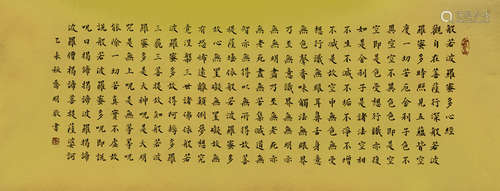 般若波羅蜜多心經
觀自在菩薩行深般若波
羅蜜多時照見五蘊皆空
度一切苦厄舍利子色不
異空空不異色色即是空
空即是色受想行識亦復
如是舍利子是諸法空相
不生不滅不垢不淨不增
不減是故空中無色無受
想行識無眼耳鼻舌身意
無色聲香味觸法無眼界
乃至無意識界無無明亦
無無明盡乃至無老死亦
無老死盡無苦集滅道無
智亦無得以無所得故菩
提薩埵依般若波羅蜜多
故心無罣礙無罣礙故無
有恐怖遠離顛倒夢想究
竟涅槃三世諸佛依般若
波羅蜜多故得阿耨多羅
三藐三菩提故知般若波
羅蜜多是大神咒是大明
咒是無上咒是無等等咒
能除一切苦真實不虛故
說般若波羅蜜多咒即說
咒曰揭諦揭諦波羅揭諦
波羅僧揭諦菩提薩婆訶
乙未秋明敬書